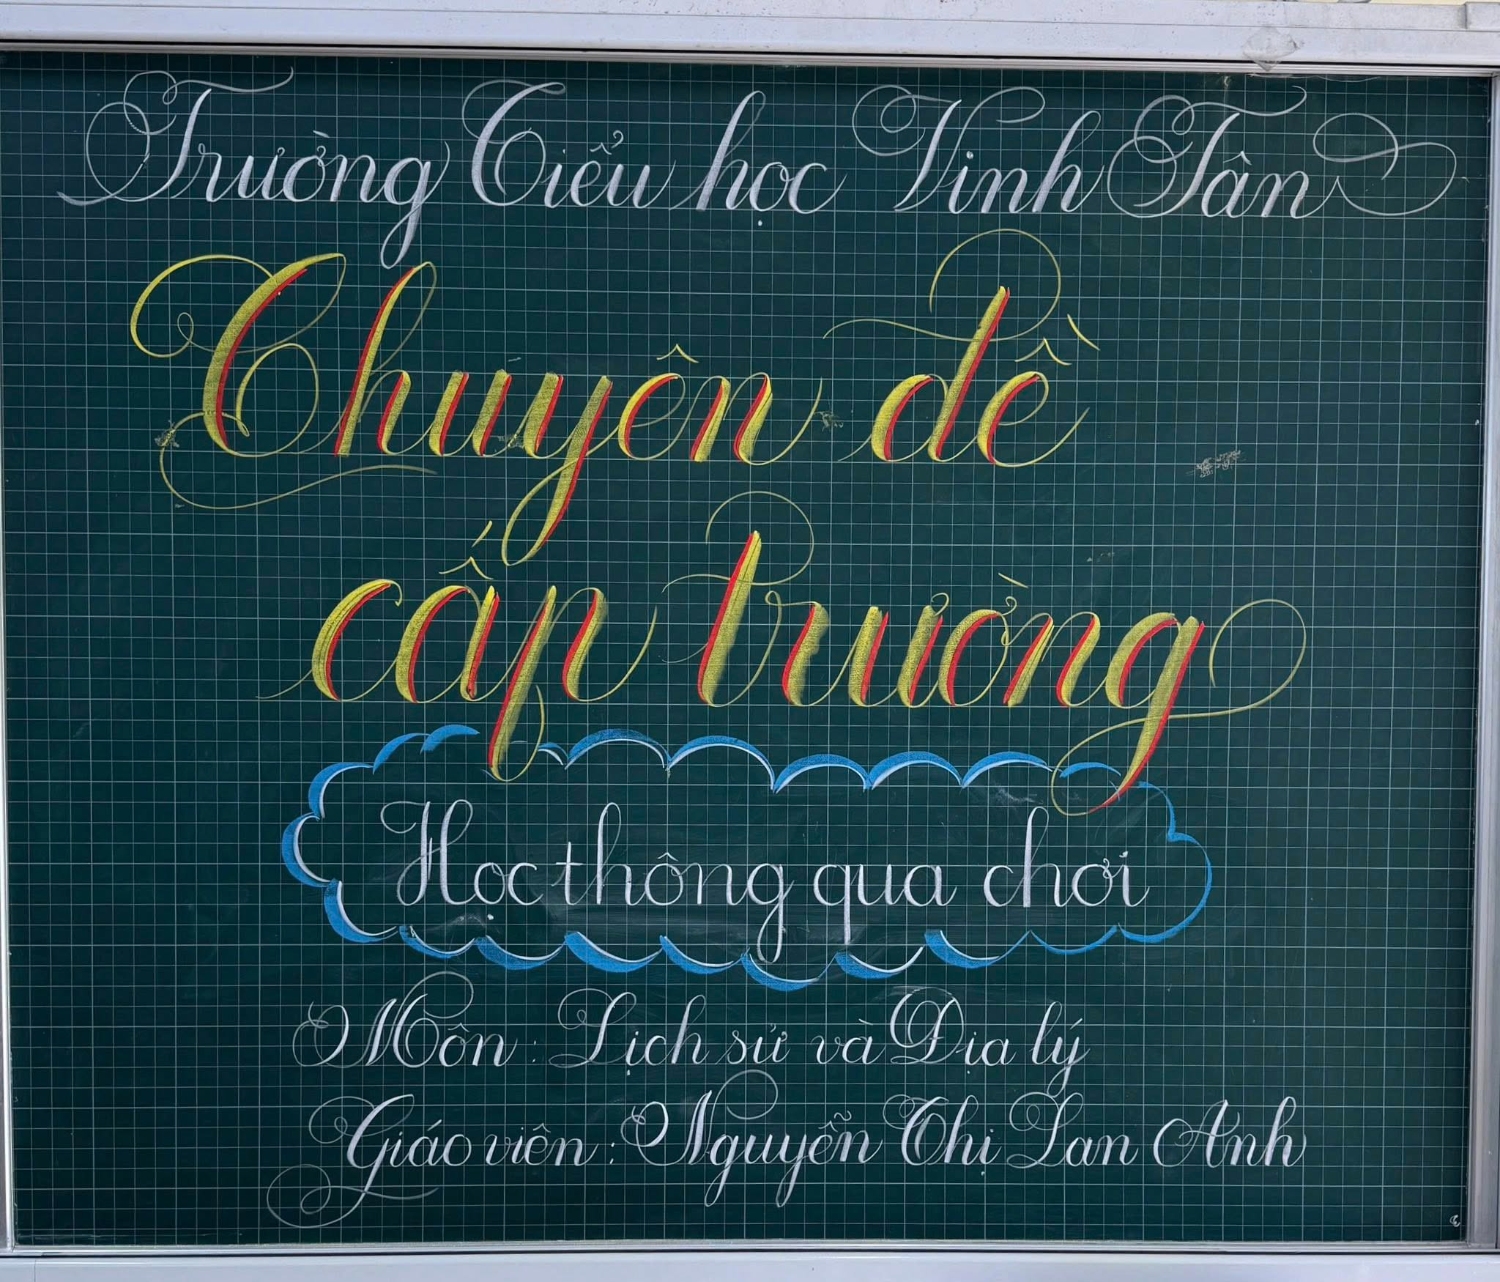 Trường Tiểu học Vinh Tân
Chuyên đề
cấp trường
Học thông qua chơi
Môn : Lịch sử và Địa lý
Giáo viên : Nguyễn Thị Lan Anh